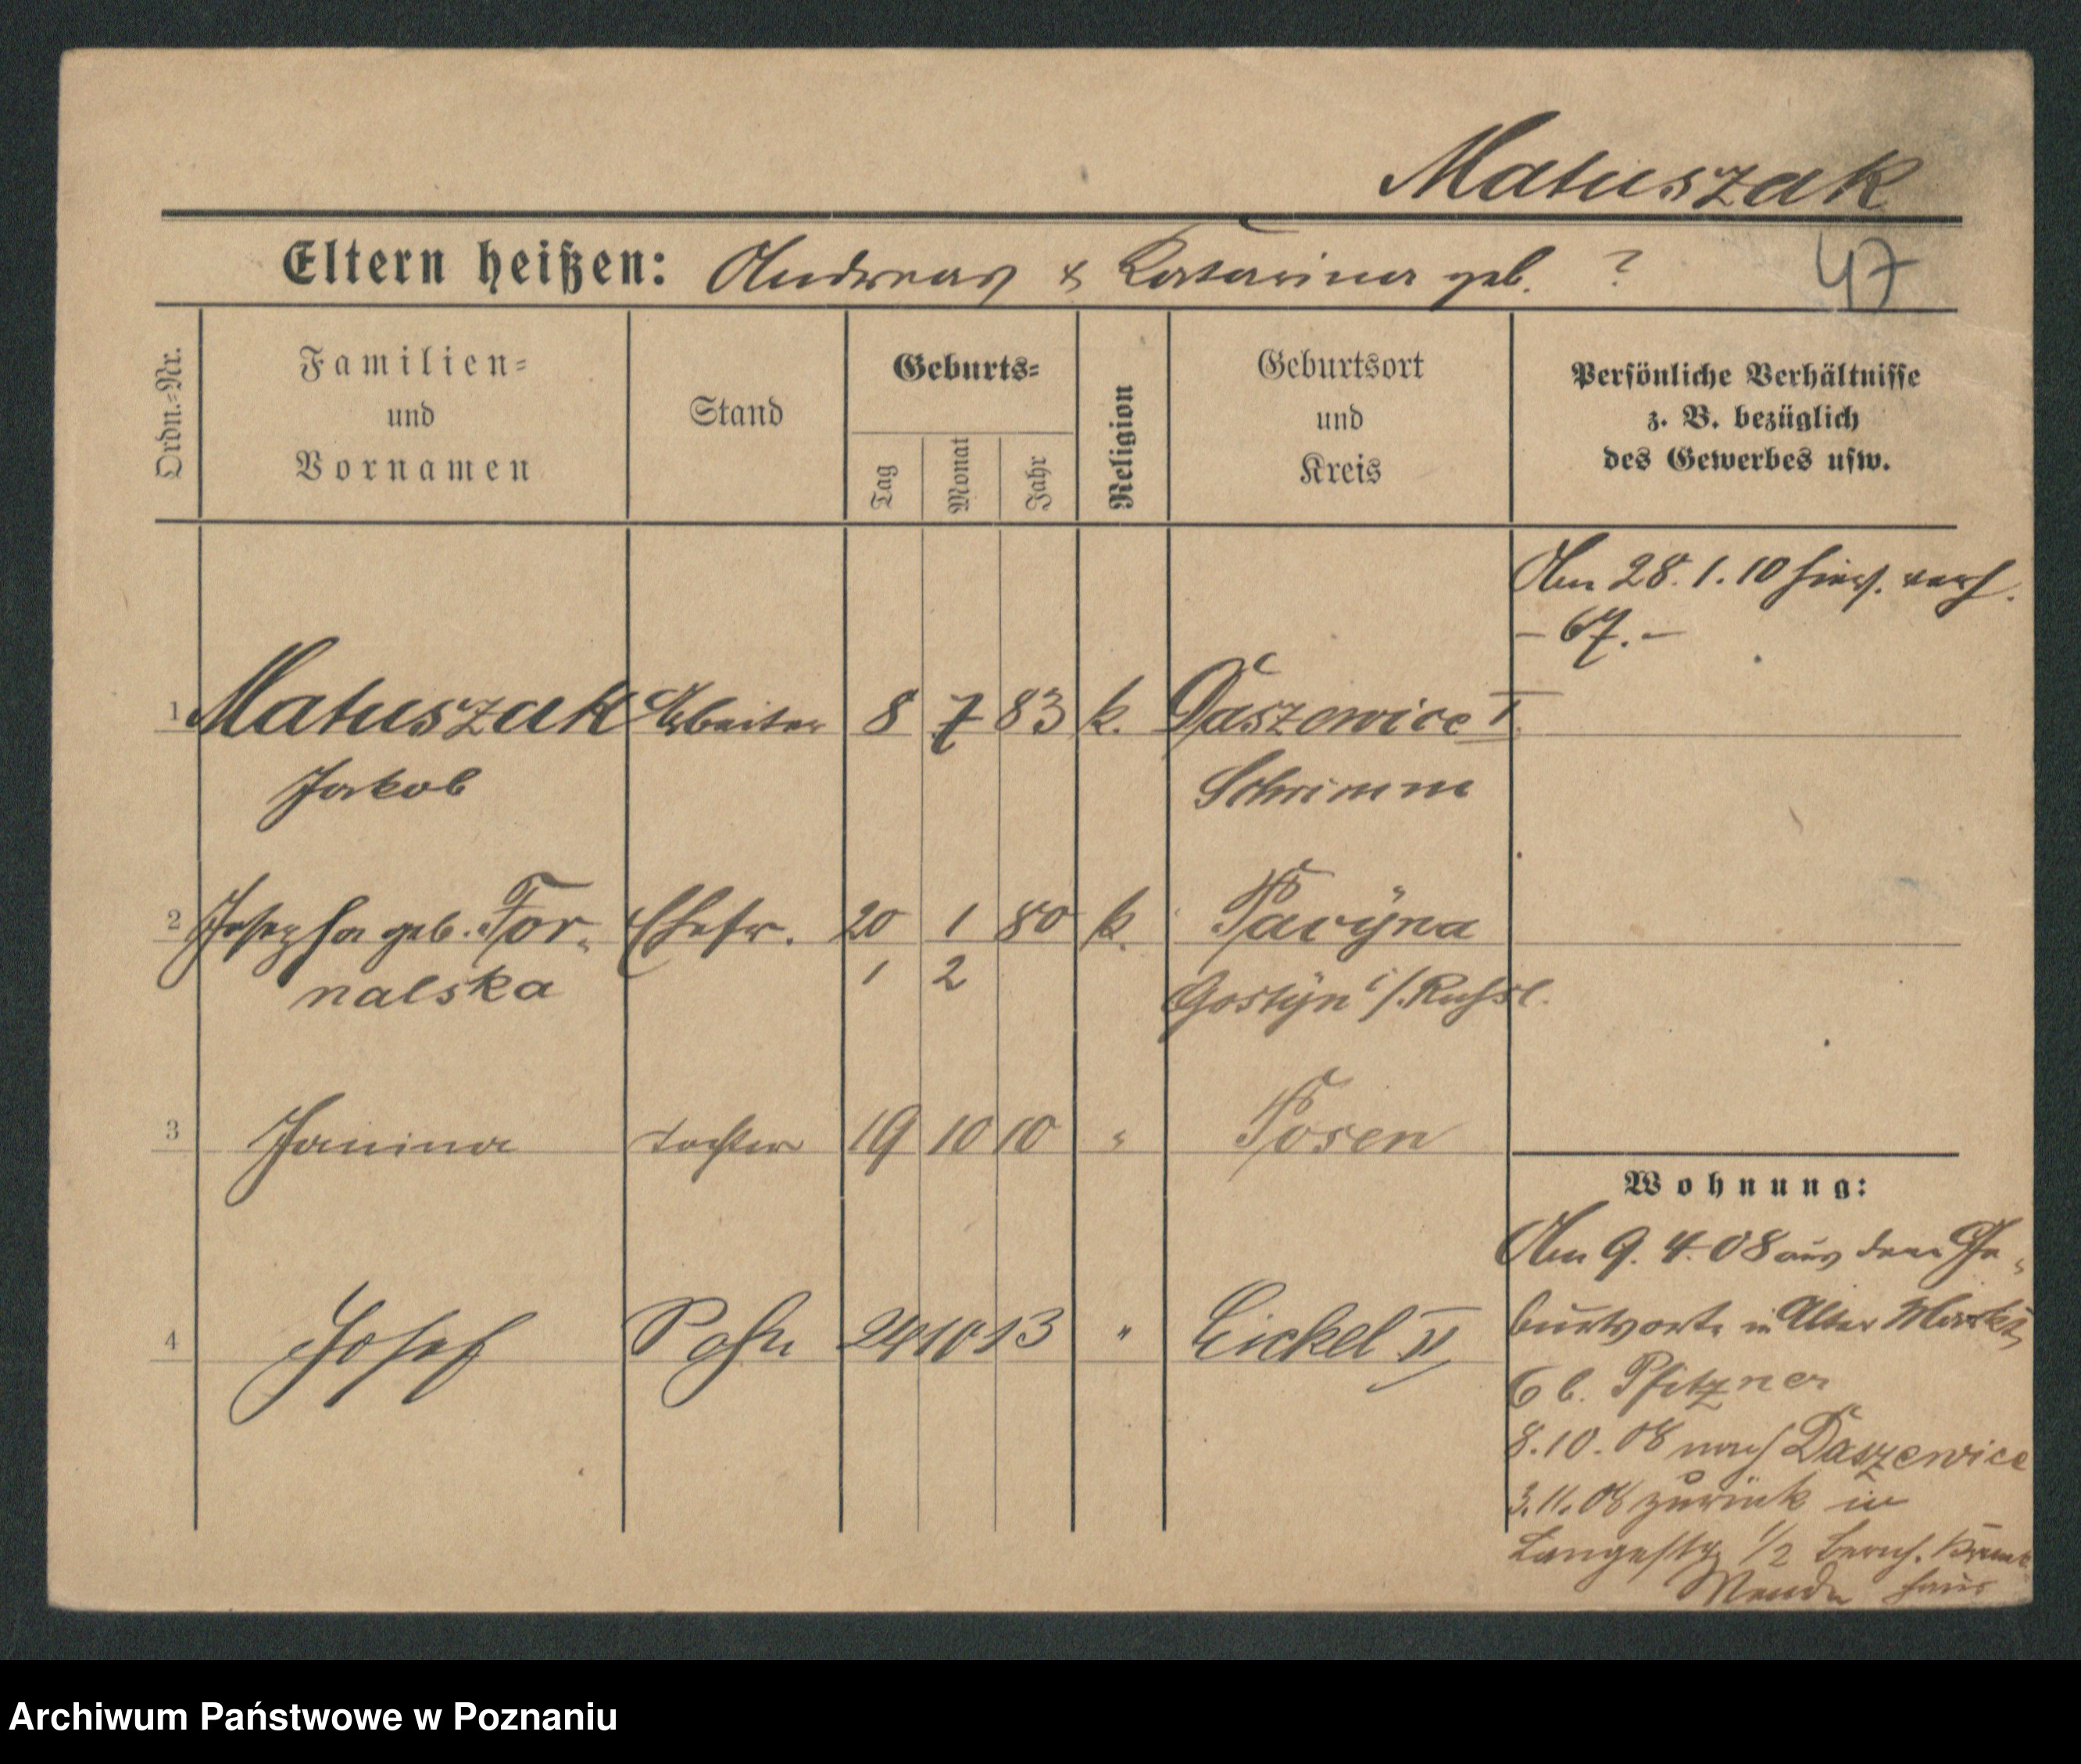 Matuszak
Eltern heißen: Andreas & Katarina geb. ?
47
Ordn.-Nr.
Familien-
und
Vornamen
Stand
Geburts-
Tag
Monat
Jahr
Religion
Geburtsort
und
Kreis
Persönliche Verhältnisse
z. B. bezüglich
des Gewerbes usw.
Am 28.1.10 hiers. verh.
- 67. -
1 Matuszak Arbeiter 8 7 83 k. Daszewice I
Jakob Schrimm
2 Josepha geb. Tor- Ehefr. 20 1 80 k. Pacÿna
nalska 1 2 Gostÿn i/. Russl.
3 Janina Tochter 19 10 10 " Posen
Wohnung:
4 Josef Sohn 24 10 13 " Eickel II
Am 9.4.08 aus dem Ge-
burtsorte in Alter Markt
6 b. Pfitzner
8.10.08 nach Daszewice
3.11.08 zurück in
Langestr 1/2 Krank
haus
Archiwum Państwowe w Poznaniu